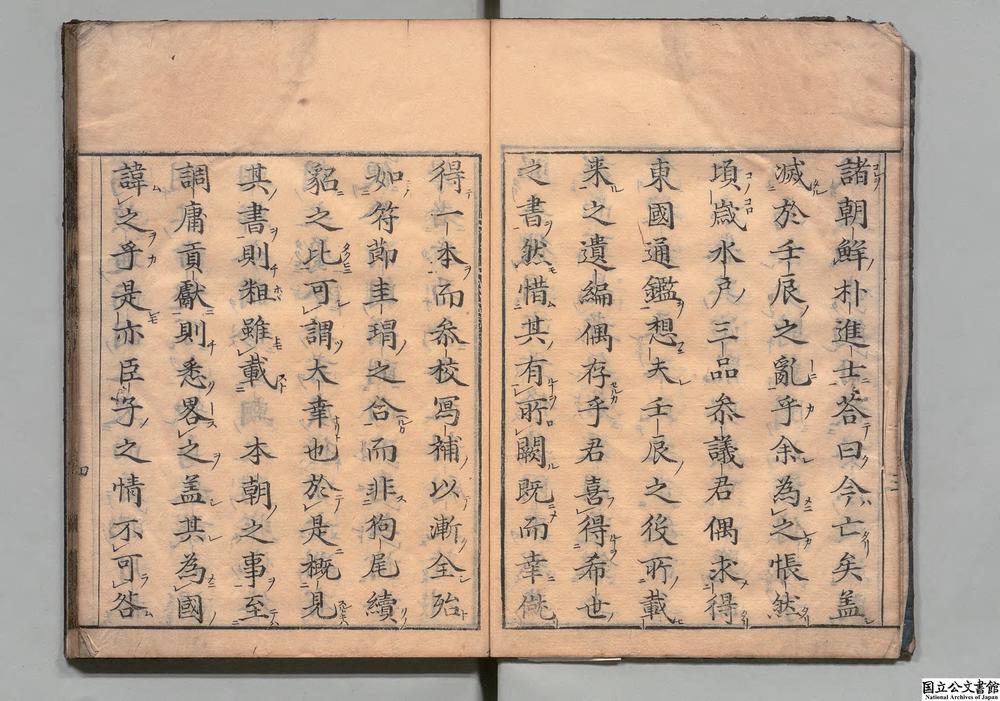 諸朝鮮朴進士荅曰今亡矣盖
滅於壬辰之亂乎余為之悵然
頃歳水戸三品叅議君偶求得
東國通鑑想夫壬辰之役所載
来之遺編偶存乎君喜得希世
之書然惜其有所闕既而幸傚
得一本而叅校寫補以漸全殆
如符節圭瑁之合而非狗尾續
貂之比可謂大幸也於是概見
其書則粗雖載 本朝之事至
調庸貢獻則悉畧之盖其為國
諱之乎是亦臣子之情不可咎
三
四
国立公文書館
National Archives of Japan